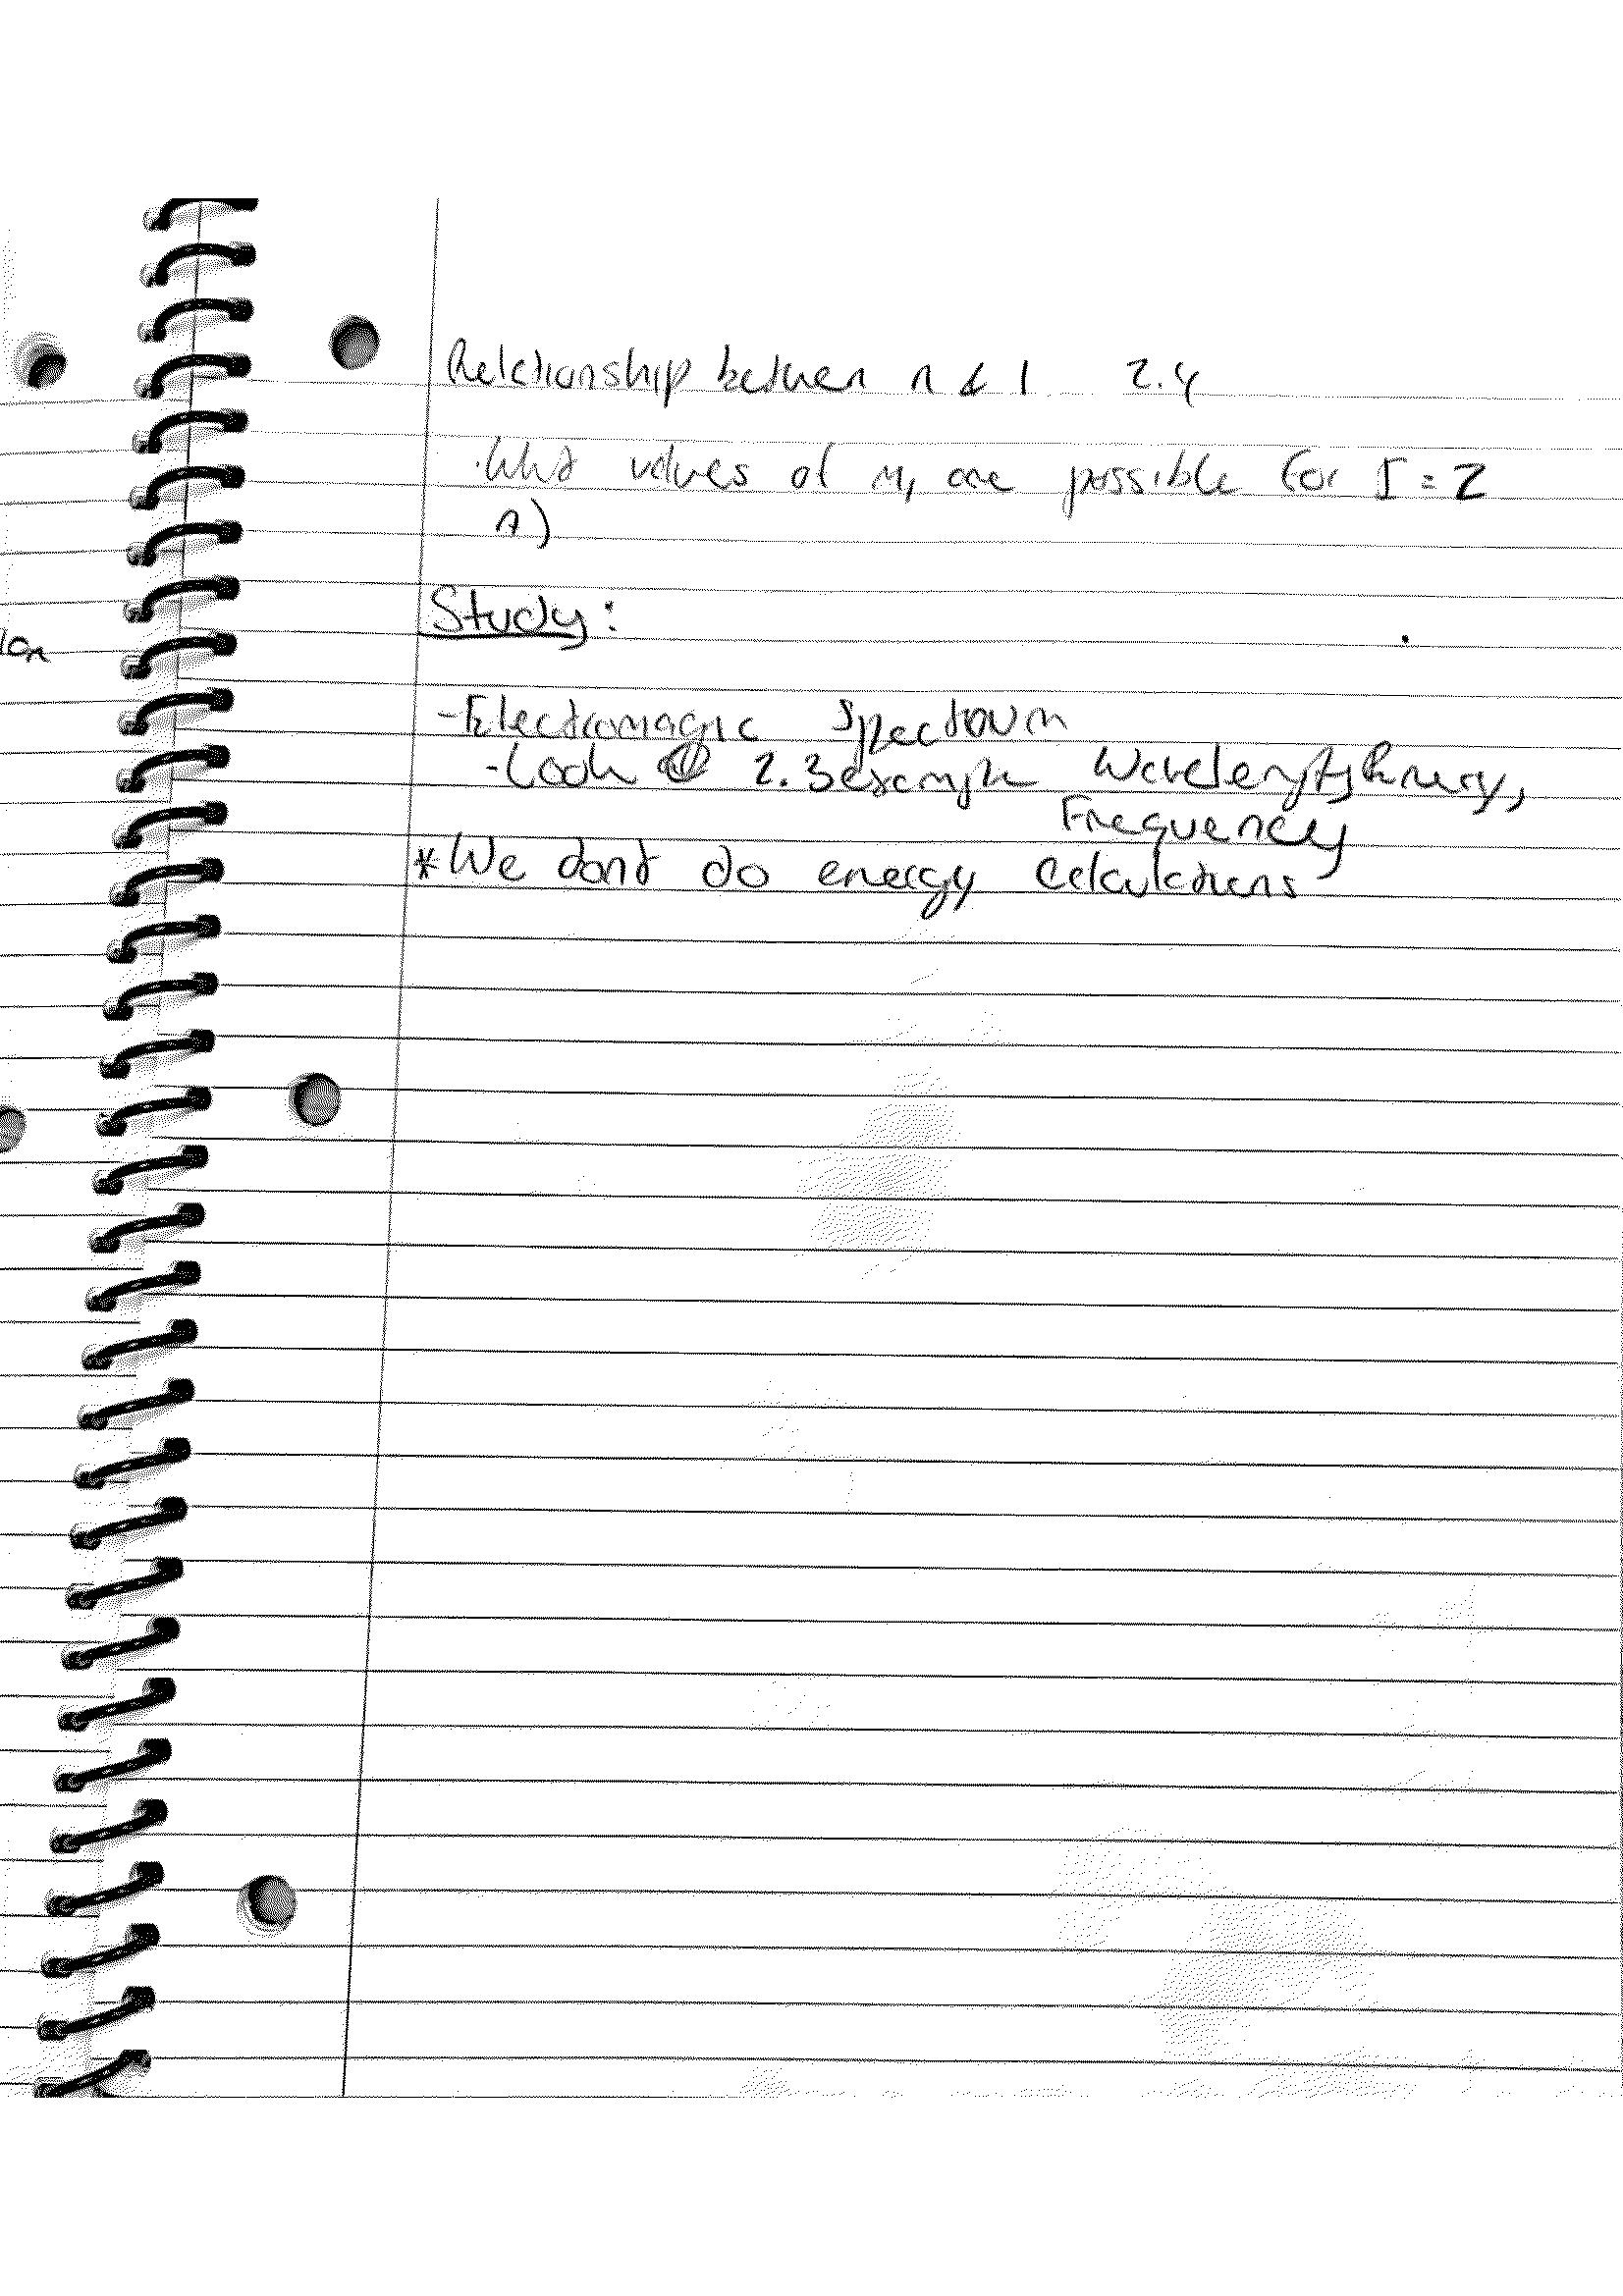 Relationship between n & l 2.4
·What values of m, are possible for l = 2
A)
ion
Study:
-Electromagnic Spectrum
-Look @ 2.3 example Wavelength,
Frequency
*We dont do energy Calculations